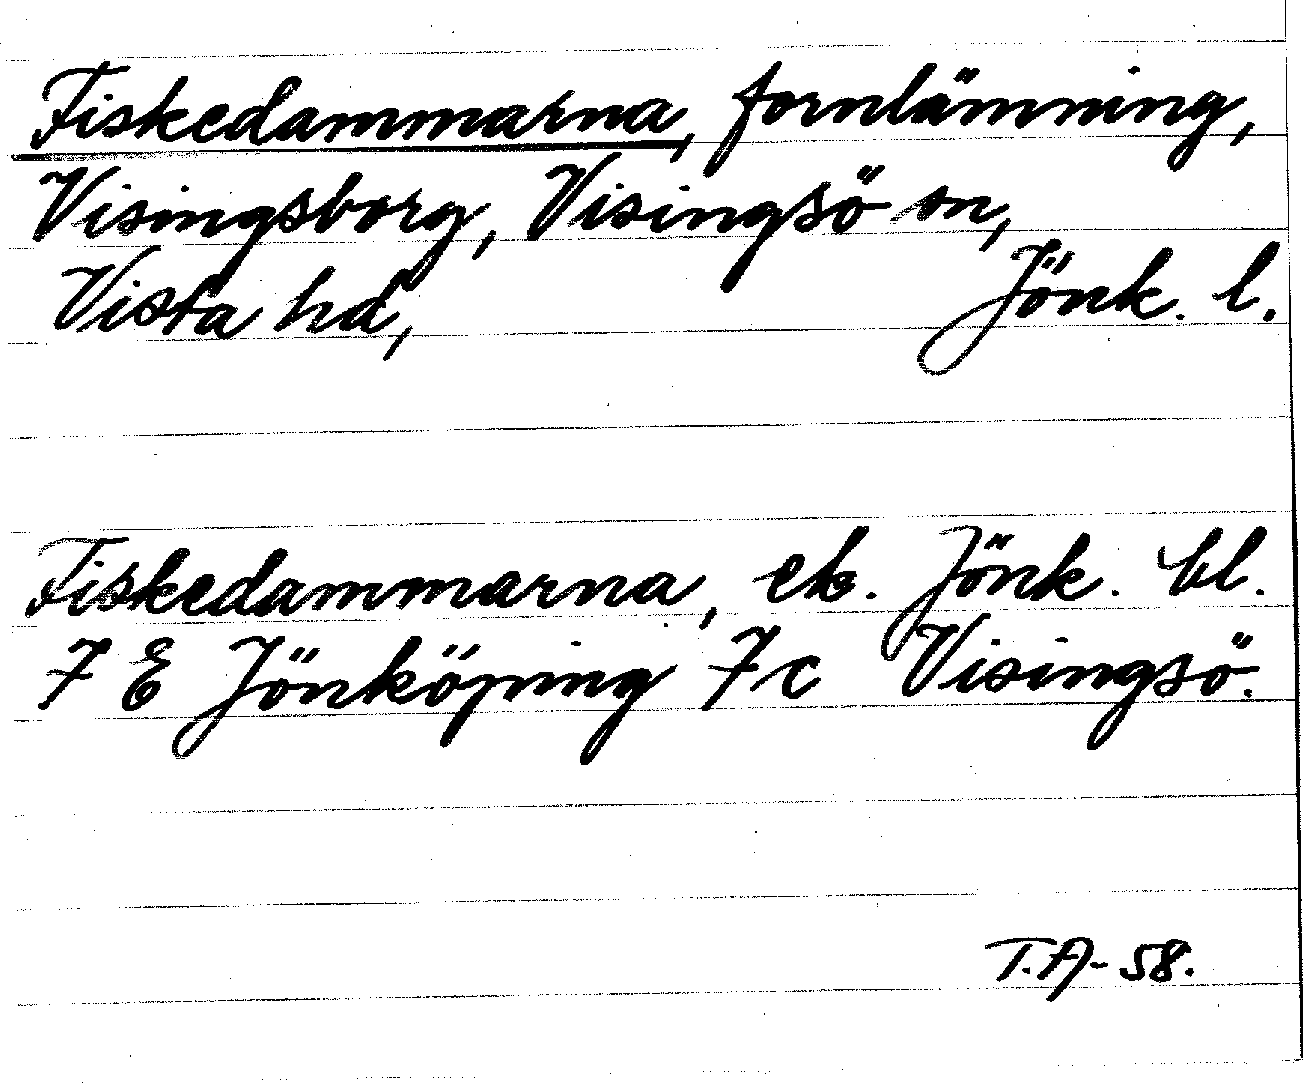 Fiskedammarna, fornlämning,
Visingsborg, Visingsö sn,
Vista hd, Jönk. l.
Fiskedammarna, ek. Jönk. bl.
7 E Jönköping 7 c Visingsö.
T.A-58.